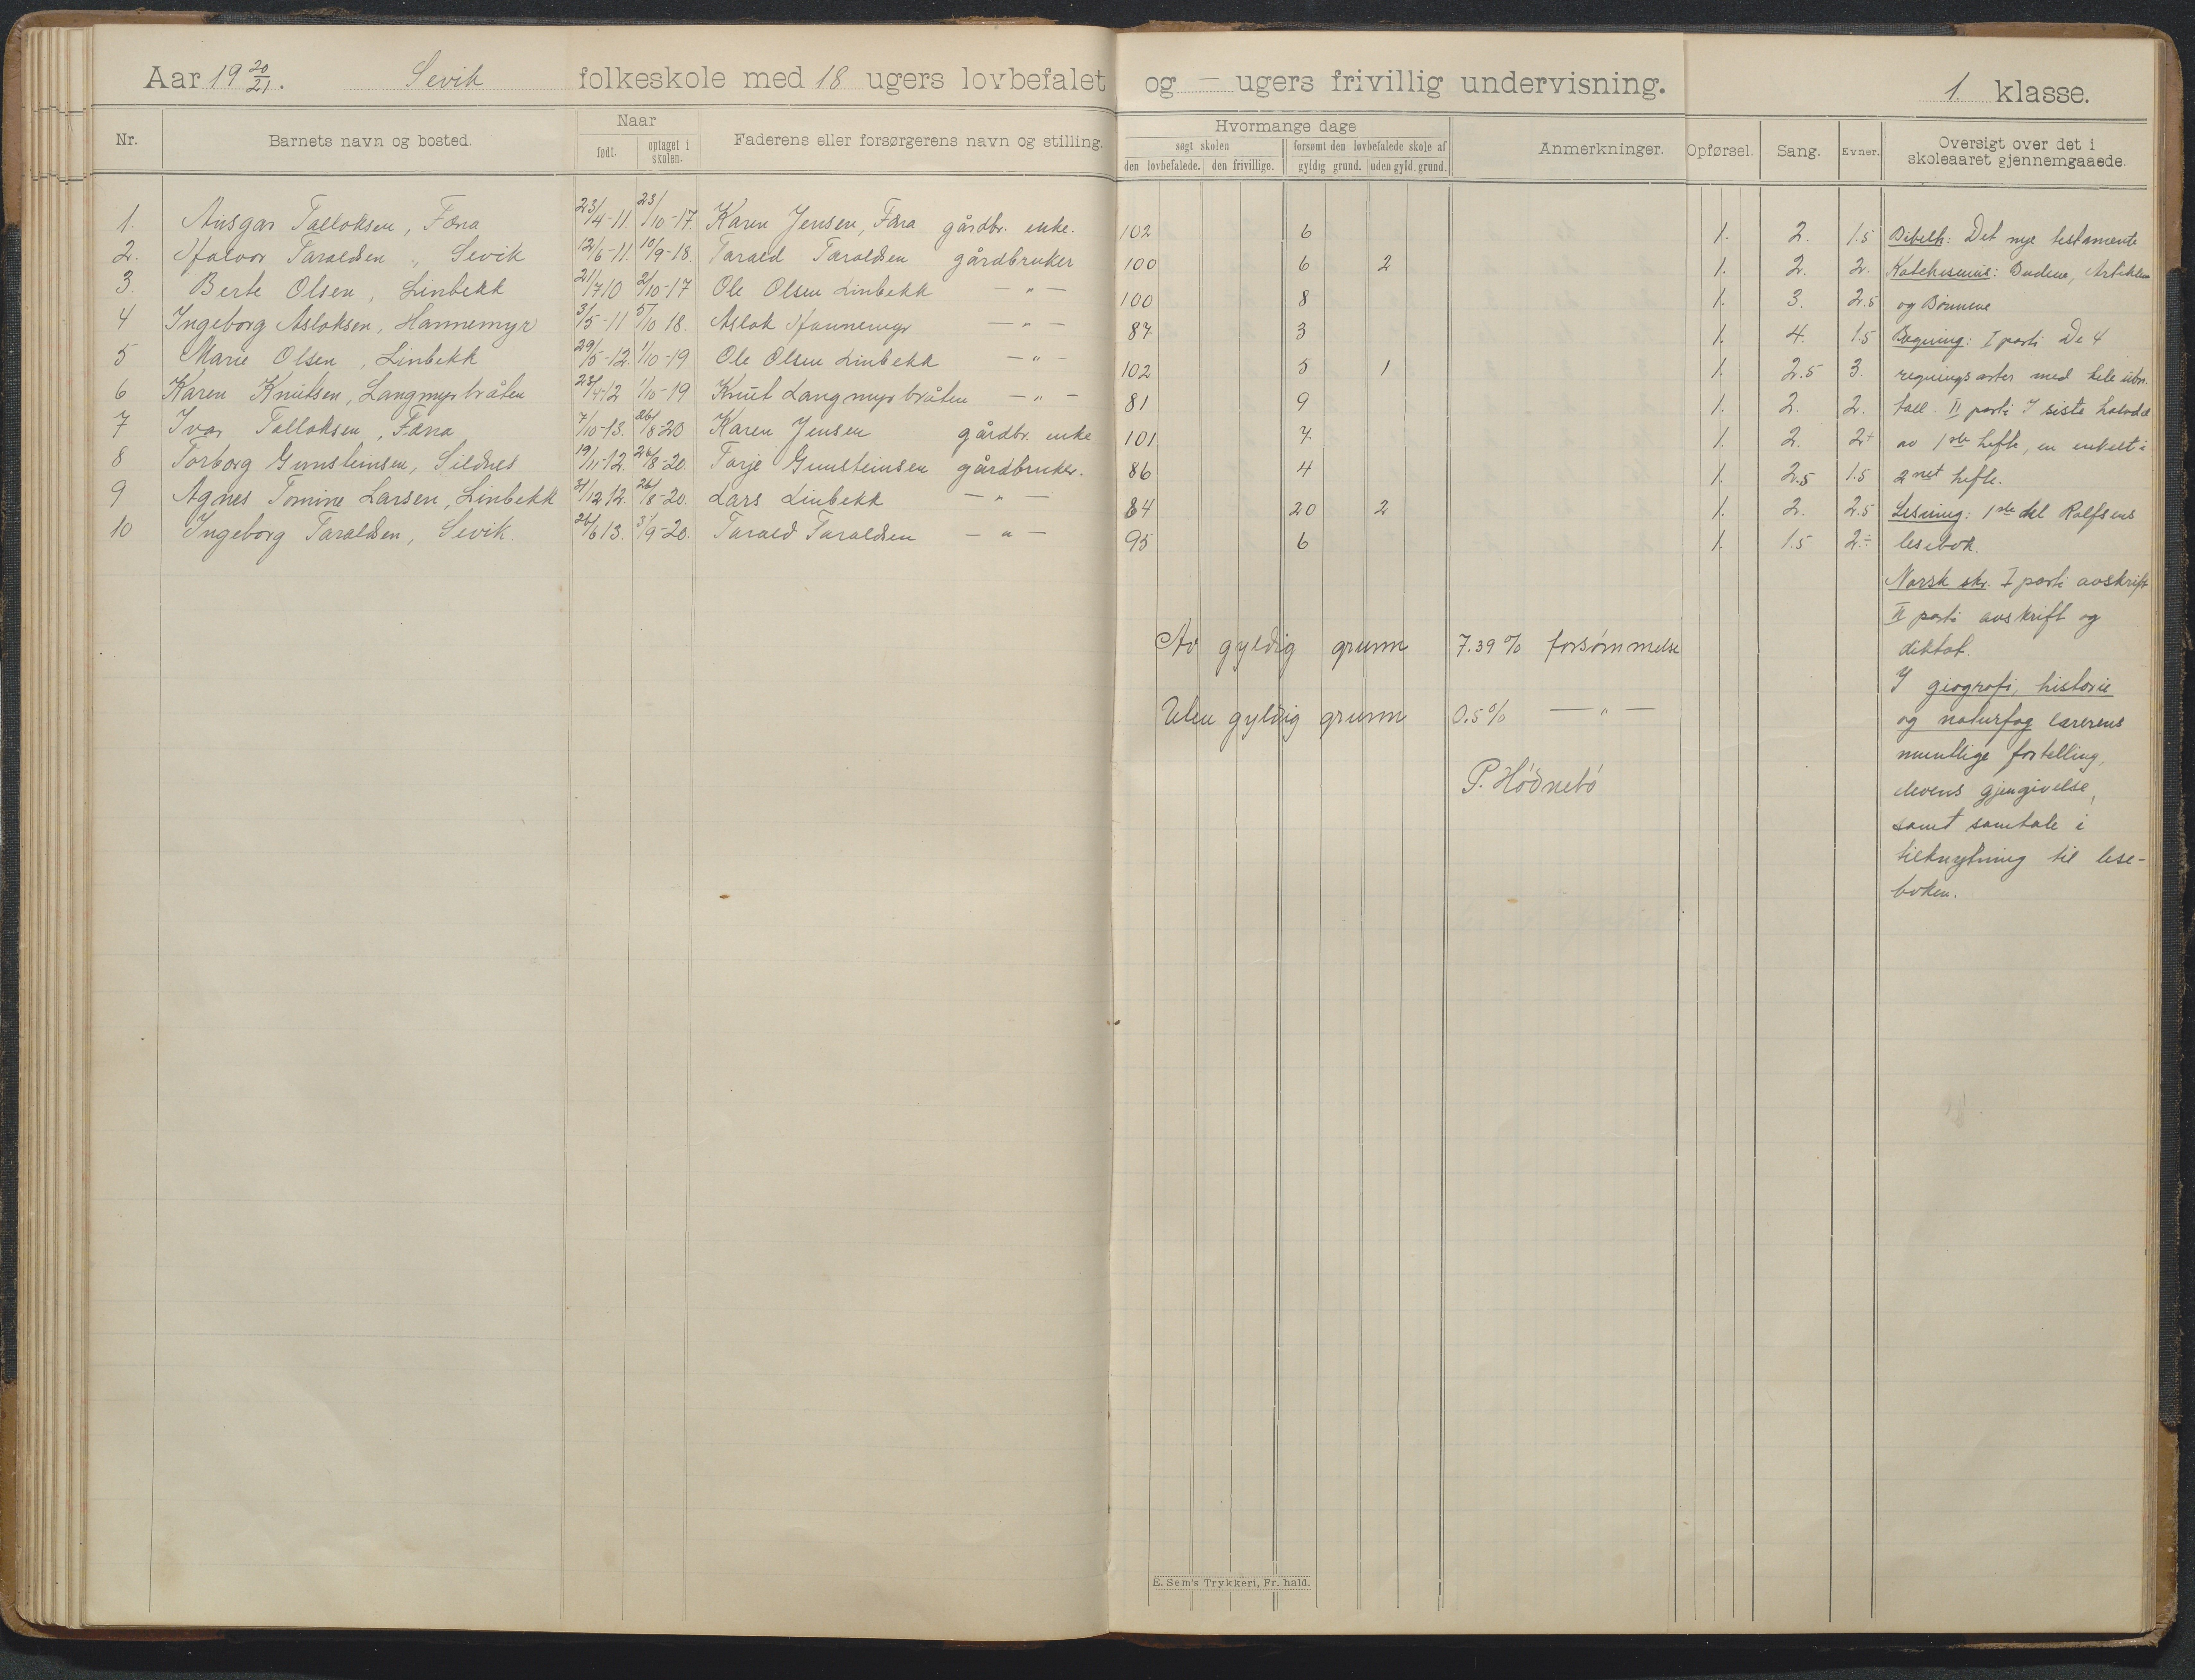 Aar 19 20/21. Sevik folkeskole med 18 ugers lovbefalet og — ugers frivillig undervisning. 1 klasse.
Nr. Barnets navn og bosted. Naar født. optaget i skolen. Faderens eller forsørgerens navn og stilling. Hvormange dage søgt skolen den lovbefalede. den frivillige. forsømt den lovbefalede skole af gyldig grund. uden gyld. grund. Anmerkninger. Opførsel. Sang. Evner. Oversigt over det i skoleaaret gjennemgaaede.
1. Ansgar Talloksen, Færa 23/4-11 23/10-17 Karen Jensen, Færa gårdbr. enke. 102 6 1. 2. 1.5 Bibelh: Det nye testamente
2. Halvor Taraldsen „ Sevik 12/6-11. 10/9-18. Tarald Taraldsen gårdbruker 100 6 2 1. 2. 2. Katekismus: Budene, Artiklene
3. Berte Olsen, Linbekk 21/7 10 2/10-17 Ole Olsen Linbekk — " — 100 8 1. 3. 2.5 og Bønnene
4 Ingeborg Asloksen, Hannemyr 3/5-11 5/10 18. Aslak Hannemyr — " — 87 3 1. 4. 1.5 Regning: I parti De 4
5 Marie Olsen, Linbekk 29/5-12. 1/10-19 Ole Olsen Linbekk — " — 102 5 1 1. 2.5 3. regningsarter med hele ubn.
6 Karen Knutsen, Langmyrbråten 23/4-12 1/10-19 Knut Langmyrbråten — " — 81 9 1. 2. 2. tall. II parti I siste halvdel
7 Ivar Talloksen, Færa 7/10-13. 26/8-20 Karen Jensen gårdbr. enke 101 7 1. 2. 2+ av 1ste hefte, en enkelt i
8 Torborg Gunsteinsen, Sildnes 19/11-12. 26/8-20. Tarje Gunsteinsen gårdbruker. 86 4 1. 2.5 1.5 2net hefte.
9 Agnes Tomine Larsen, Linbekk 31/12 12. 26/8-20. Lars Linbekk — " — 84 20 2 1. 2. 2.5 Lesning: 1ste del Rolfsens
10 Ingeborg Taraldsen, Sevik. 26/6 13. 3/9-20. Tarald Taraldsen — " — 95 6 1. 1.5 2.÷ lesebok.
Norsk skr. I parti avskrift
II parti avskrift og
Av gyldig grunn 7.39 % forsømmelse diktat.
I geografi, historie
Uten gyldig grunn 0.5 % — " — og naturfag lærerens
muntlige fortelling,
P. Hødnebø elevens gjengivelse,
samt samtale i
tilknytning til lese-
boken.
E. Sem's Trykkeri, Fr. hald.